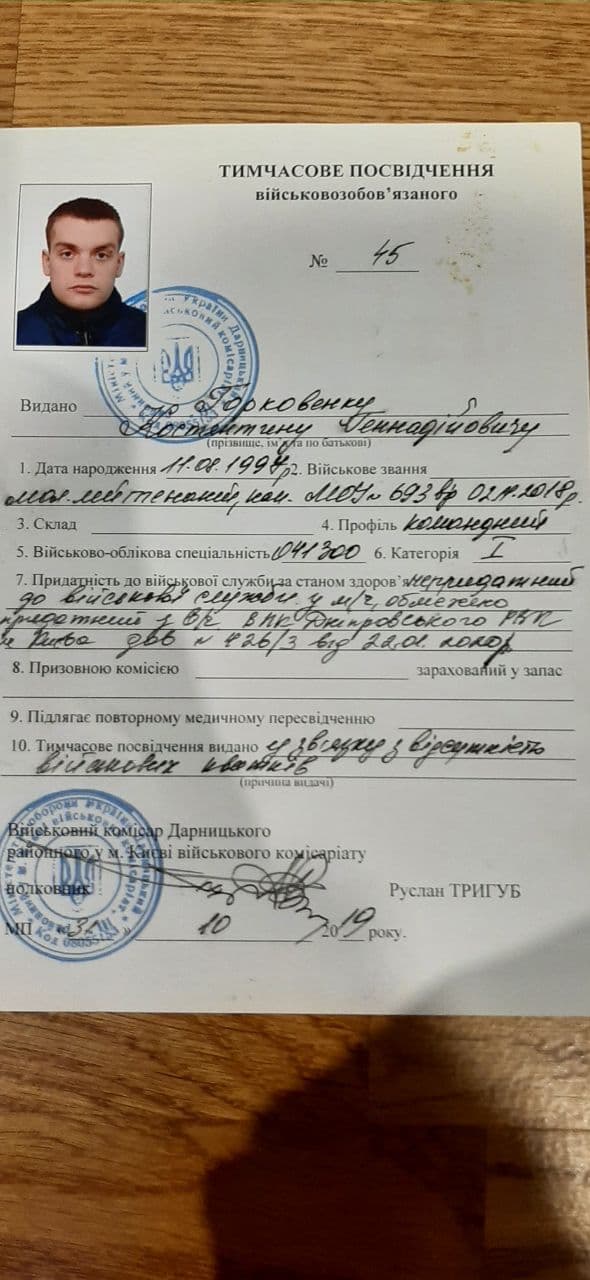 ТИМЧАСОВЕ ПОСВІДЧЕННЯ
військовозобов’язаного
№ 45
Видано Горковенку
Костянтину Геннадійовичу
(прізвище, ім’я та по батькові)
1. Дата народження 11.08. 2. Військове звання
мол. лейтенант, нак. МОУ № 693 від 2018р.
3. Склад 4. Профіль командний
5. Військово-облікова спеціальність 041300 6. Категорія I
7. Придатність до військової служби за станом здоров’я непридатний
до військової служби у м/ч, обмежено
придатний з в/с ВЛК Дніпровського РВК
м Києва № 426/3 від 22.01.
8. Призовною комісією зарахований у запас
9. Підлягає повторному медичному пересвідченню
10. Тимчасове посвідчення видано у звязку з відсутність
військових квитків
(причина видачі)
Військовий комісар Дарницького
районного у м. Києві військового комісаріату
полковник Руслан ТРИГУБ
МП «31» 10 2019 року.